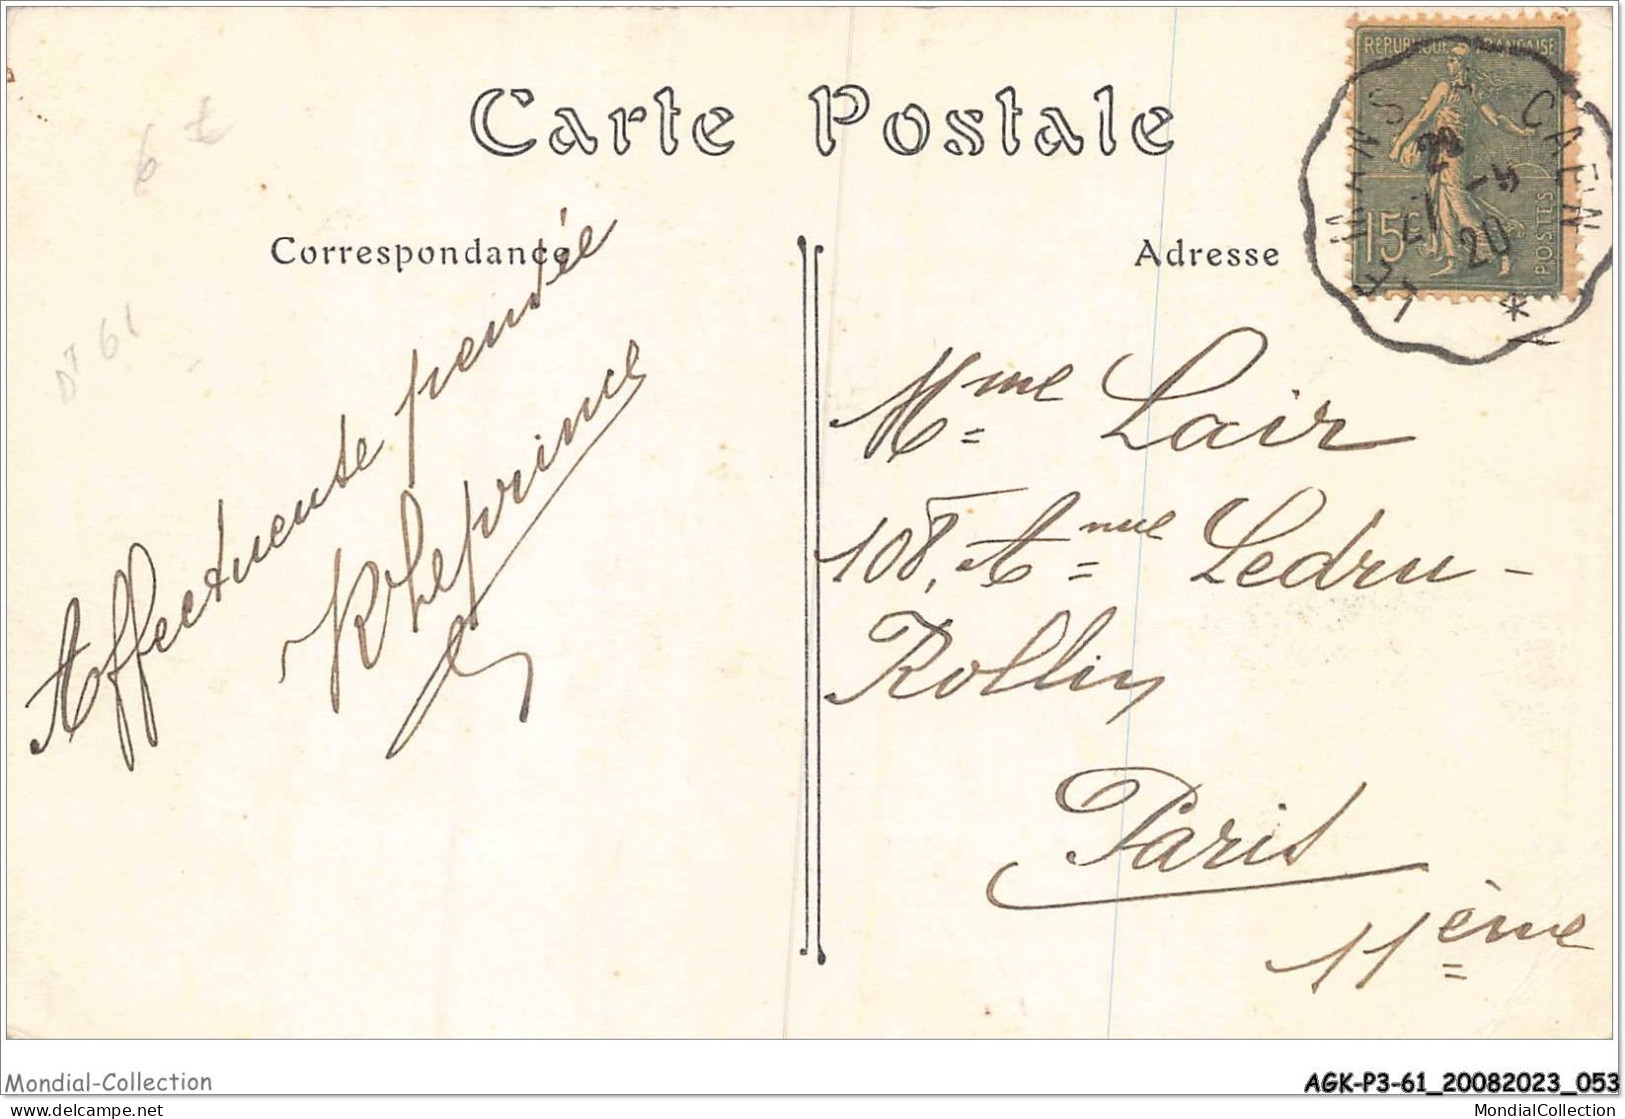 Carte Postale
Correspondance
Adresse
RÉPUBLIQUE FRANÇAISE
15c
POSTES
LE MANS A CAEN
21 -9
20
6 £
Dt 61
Affectueuse pensée
R Leprince
Mme Lair
108, Anue Ledru-
Rollin
Paris
11ème
Mondial-Collection
AGK-P3-61_20082023_053
www.delcampe.net
MondialCollection